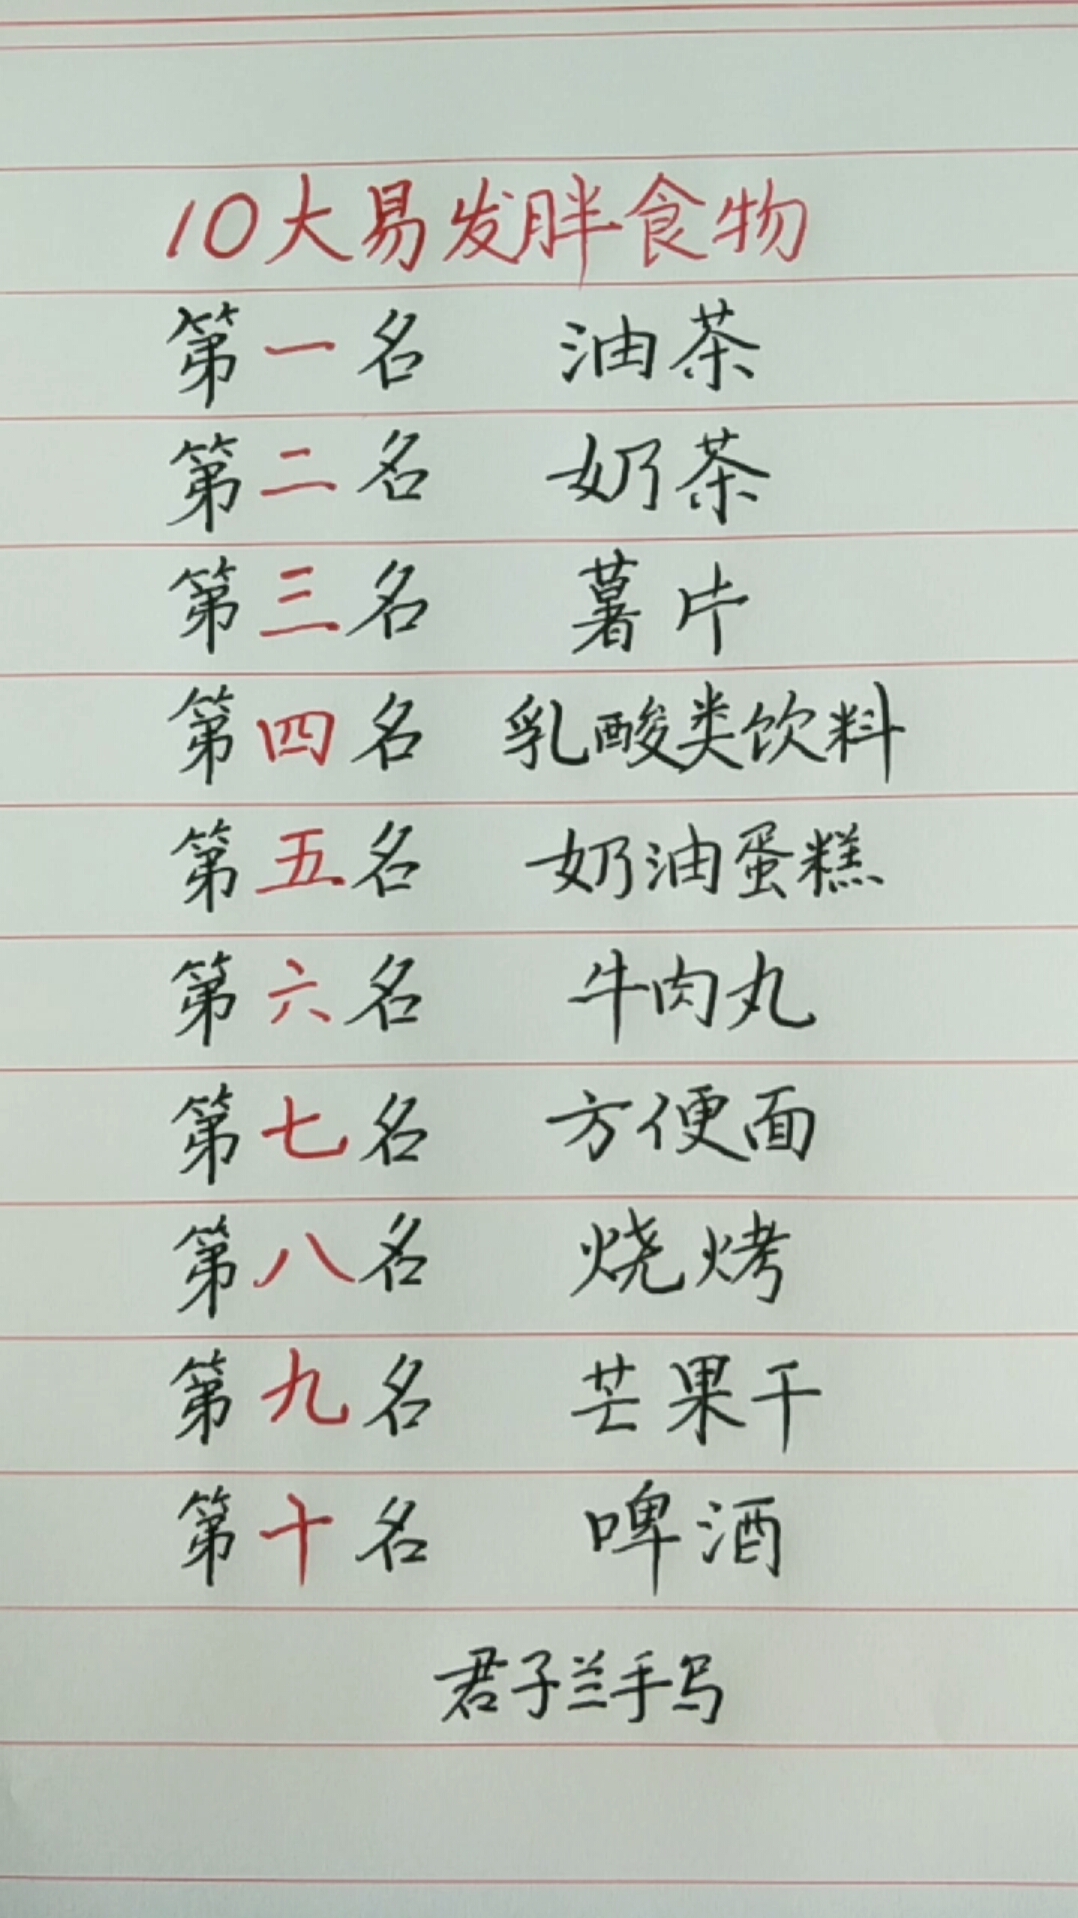 10大易发胖食物
第一名 油茶
第二名 奶茶
第三名 薯片
第四名 乳酸类饮料
第五名 奶油蛋糕
第六名 牛肉丸
第七名 方便面
第八名 烧烤
第九名 芒果干
第十名 啤酒
君子兰手写